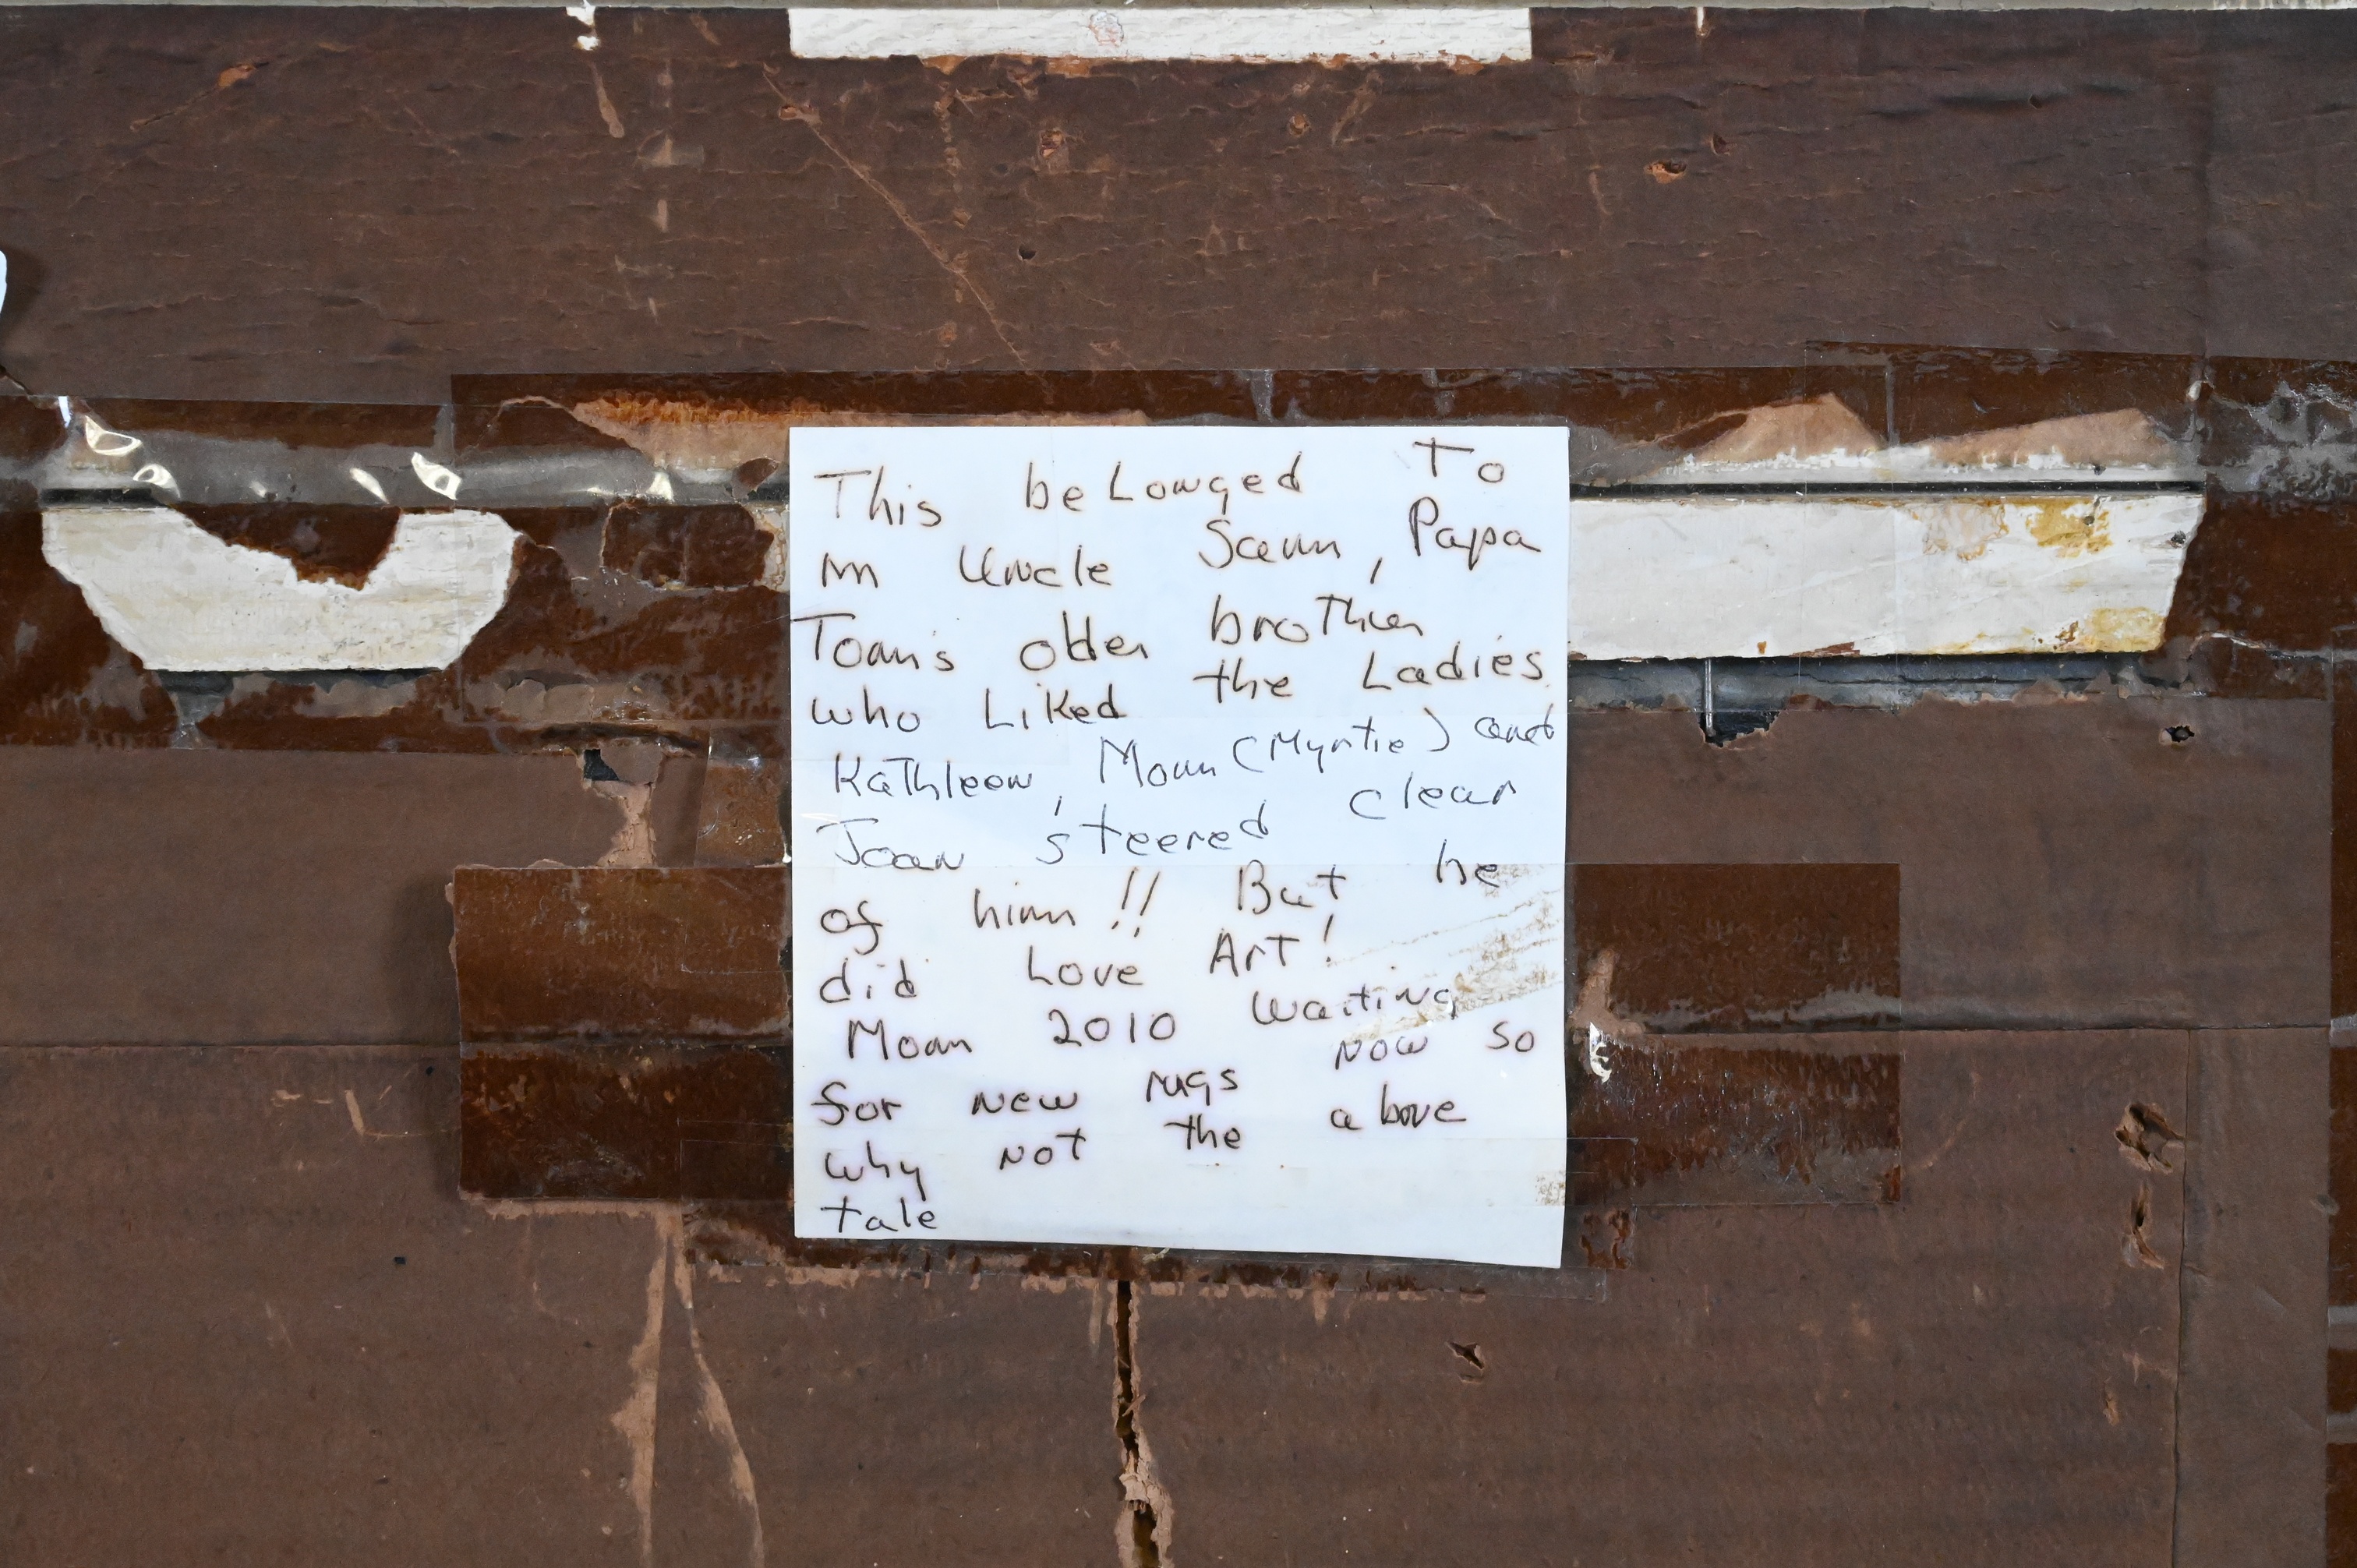 This beLonged To
m Uncle Sam, Papa
Tom's older brother
who Liked the Ladies.
Kathleen, Mom (Myrtie) and
Joan steered clear
of him!! But he
did Love Art!
Mom 2010 Waiting
for new rugs now so
why not the above
tale